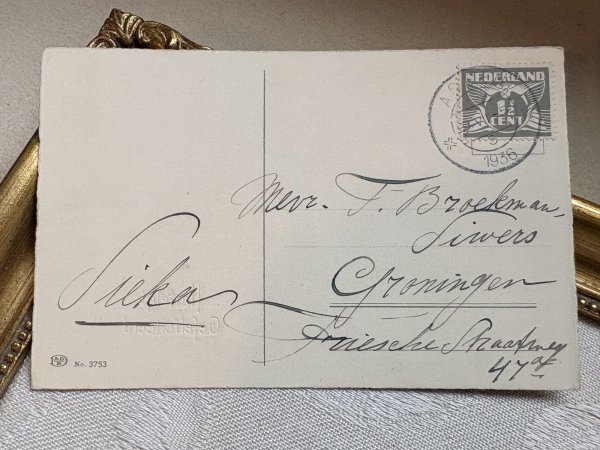 NEDERLAND
1½
CENT
1936
Mevr. T. Broekman-
Siwers
Groningen
Friesche Straatweg
47a
Sieka
No. 3753